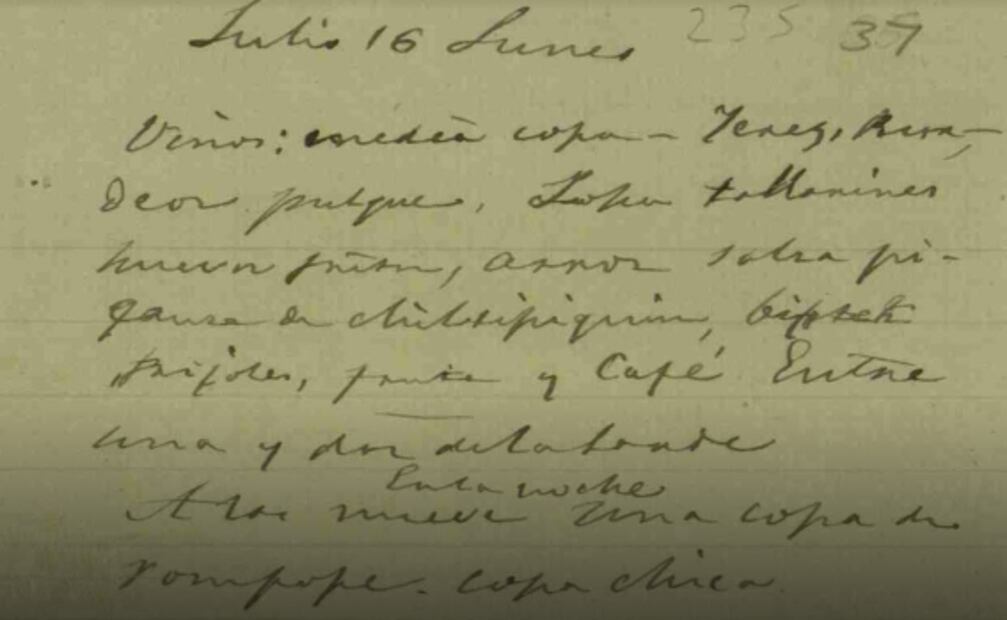 Julio 16 Lunes 235 37
Vinos: media copa - Jerez,
pulque, Sopa tallarines
huevos fritos, arroz salsa pi-
de chilpipiquin, biftek
frijoles, fruta y Café Entre
una y dos de la tarde
En la noche
A las nueve una copa de
rompope. copa chica